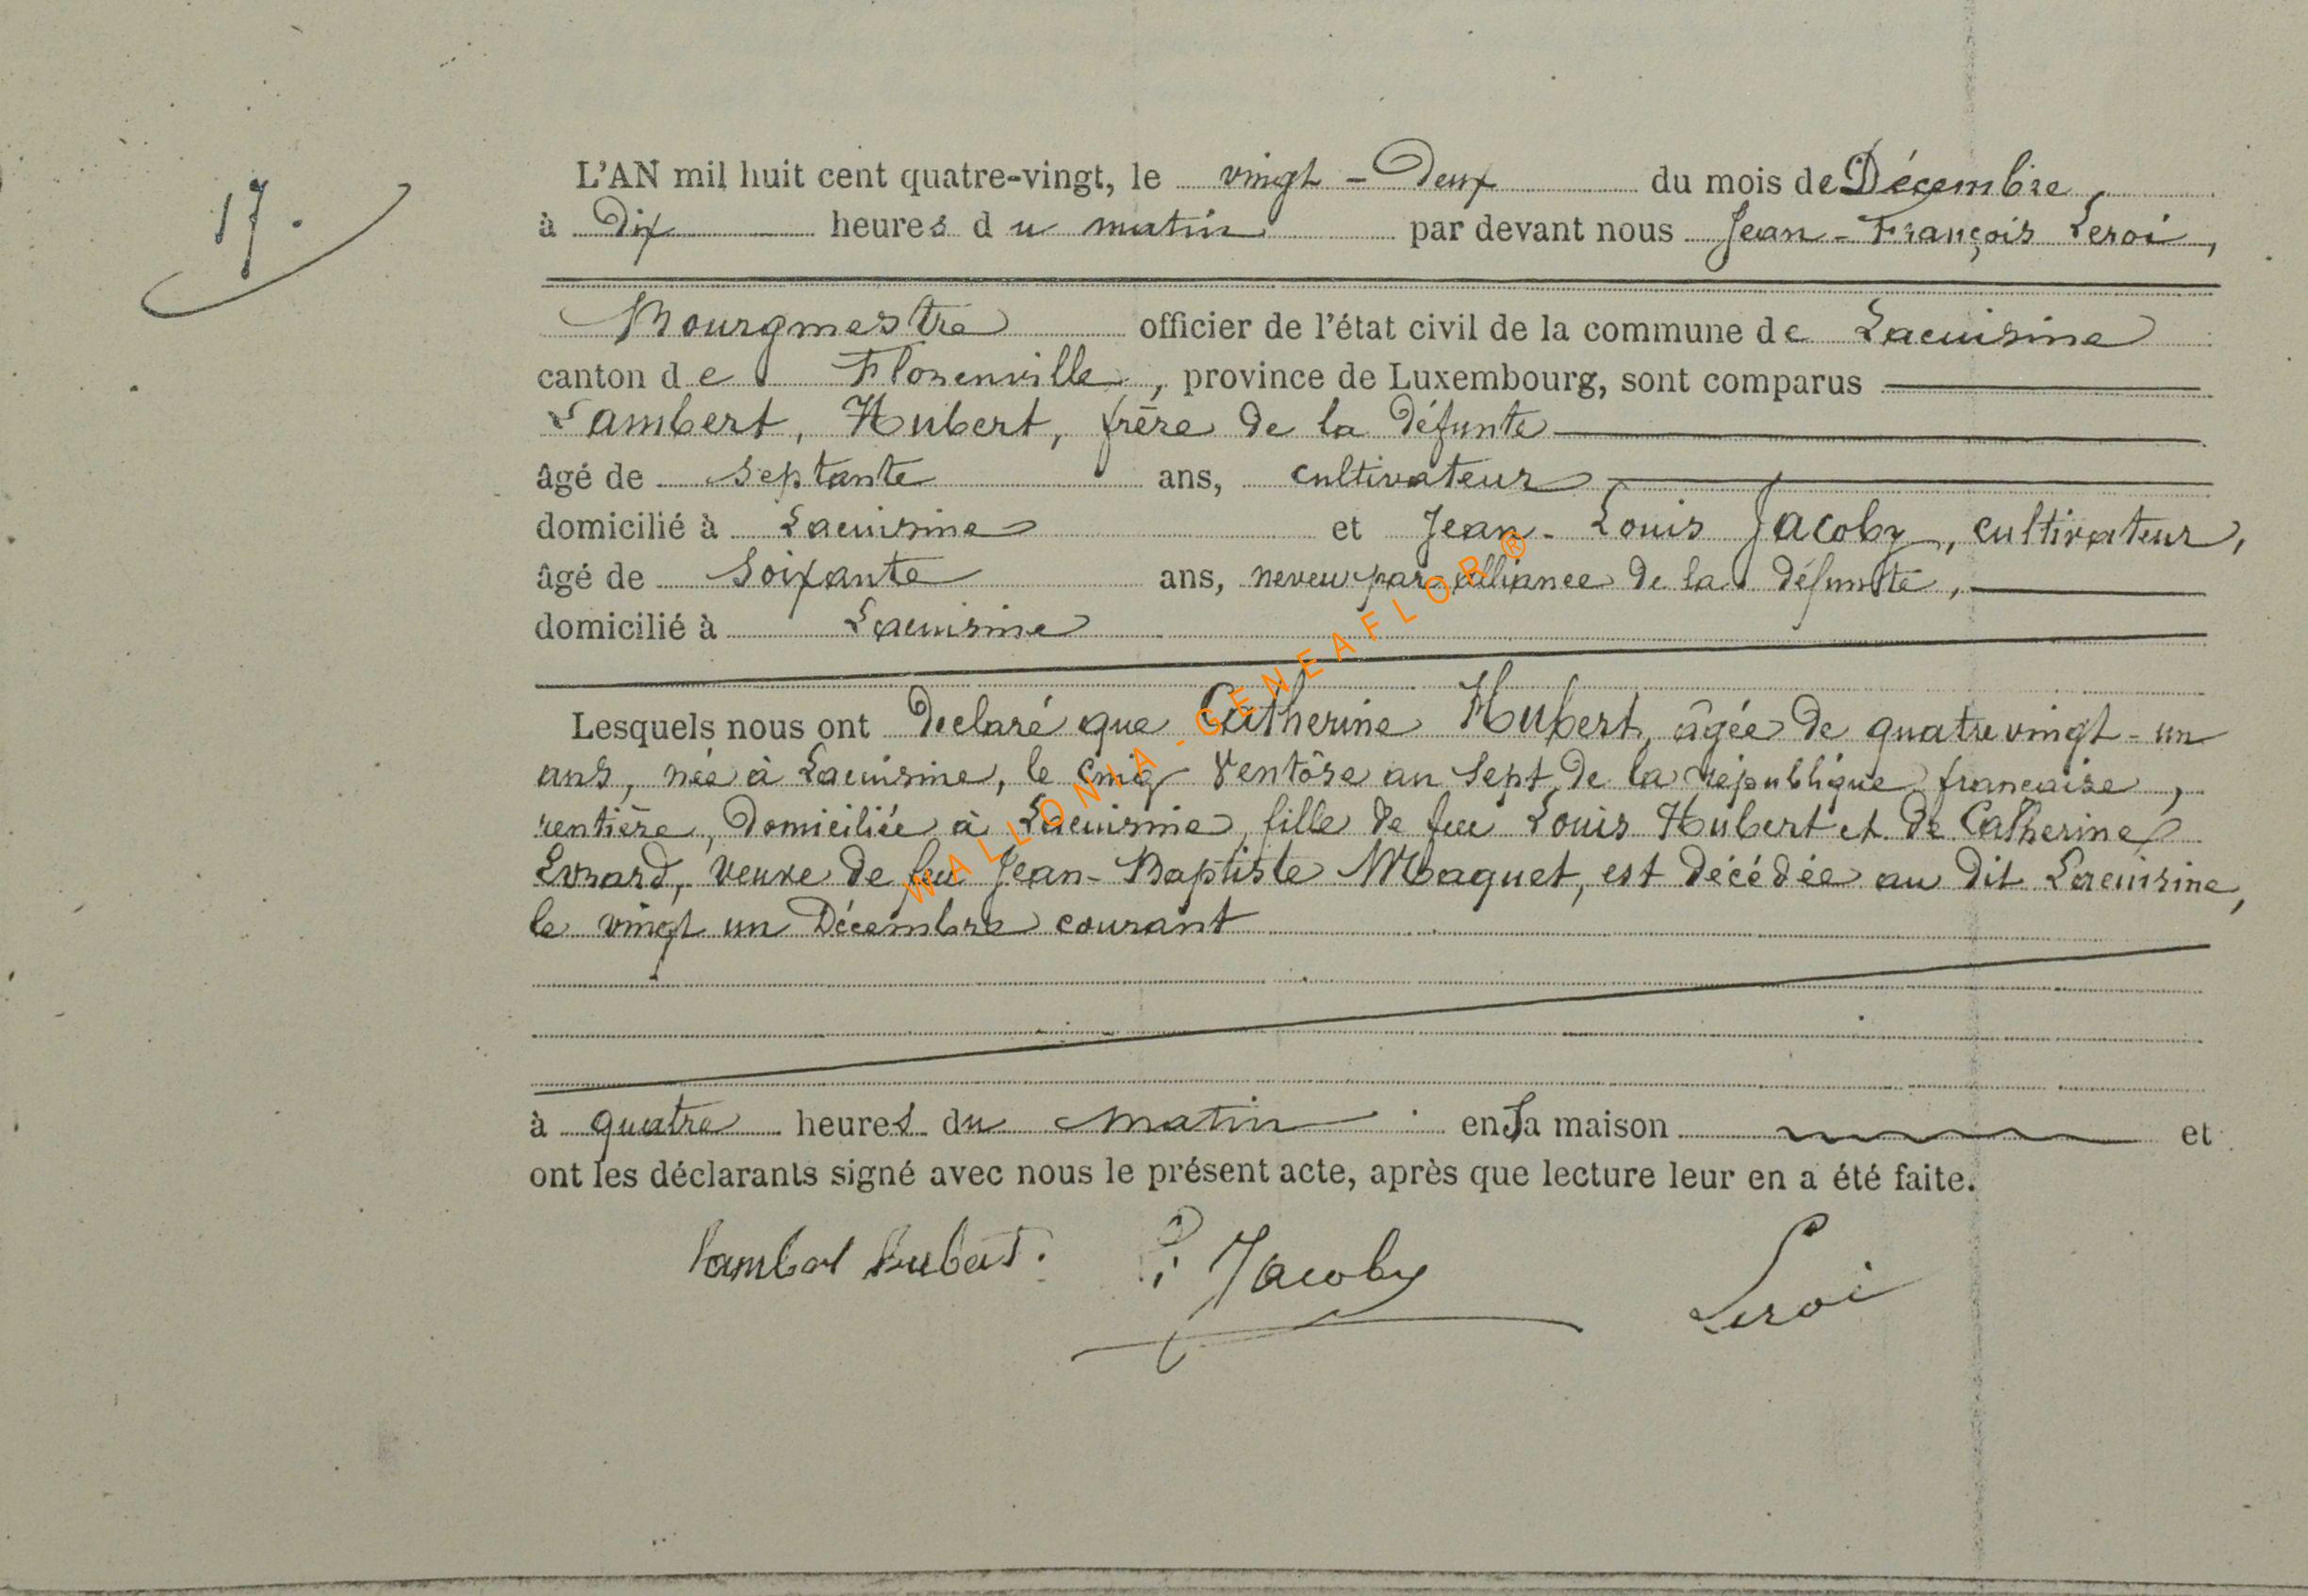 17.
L'AN mil huit cent quatre-vingt, le vingt-Deux du mois de Décembre,
à Dix heures du matin par devant nous Jean-François Leroi,
Bourgmestre officier de l'état civil de la commune de Lacuisine
canton de Florenville, province de Luxembourg, sont comparus
Lambert, Hubert, frère de la défunte
âgé de septante ans, cultivateur
domicilié à Lacuisine et Jean-Louis Jacoby, cultivateur,
âgé de Soixante ans, neveu par alliance de la défunte,
domicilié à Lacuisine
Lesquels nous ont déclaré que Catherine Hubert, âgée de quatre vingt-un
ans, née à Lacuisine, le cinq Ventôse an Sept de la république française,
rentière, domiciliée à Lacuisine, fille de feu Louis Hubert et de Catherine
Evrard, veuve de feu Jean-Baptiste Maquet, est décédée au dit Lacuisine,
le vingt un Décembre courant
à quatre heures du matin en sa maison et
ont les déclarants signé avec nous le présent acte, après que lecture leur en a été faite.
Lambert Hubert. Jacoby Leroi
WALLONIA-GENEAFLOR®